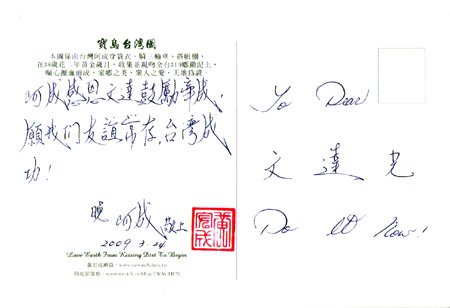 寶島台灣圖
本圖係由台灣阿成穿簑衣、騎三輪車、搭帳棚、
在38歲花二年黃金歲月、收集並親吻全台319鄉鎮泥土、
嘔心瀝血而成,家鄉之美、眾人之愛、天地為證
阿成感恩文達鼓勵牽成,
願我们友誼常存,台灣成
功!
晚 阿成 敬上
2009.3.24
Love Earth From Kissing Dirt To Begin
To Dear
文達兄
Do It Now!